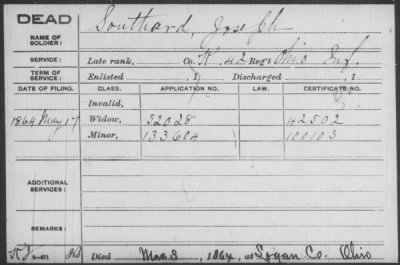 DEAD
NAME OF SOLDIER: Southard, Joseph
SERVICE: Late rank, Co. K, 42 Reg't Ohio Inf.
TERM OF SERVICE: Enlisted , 1 Discharged , 1
DATE OF FILING. CLASS. APPLICATION NO. LAW. CERTIFICATE NO.
Invalid,
1864 May 17 Widow, 52028 42502
Minor, 133604 100103
ADDITIONAL SERVICES:
REMARKS:
Died Mar. 3, 1864, at Logan Co. Ohio